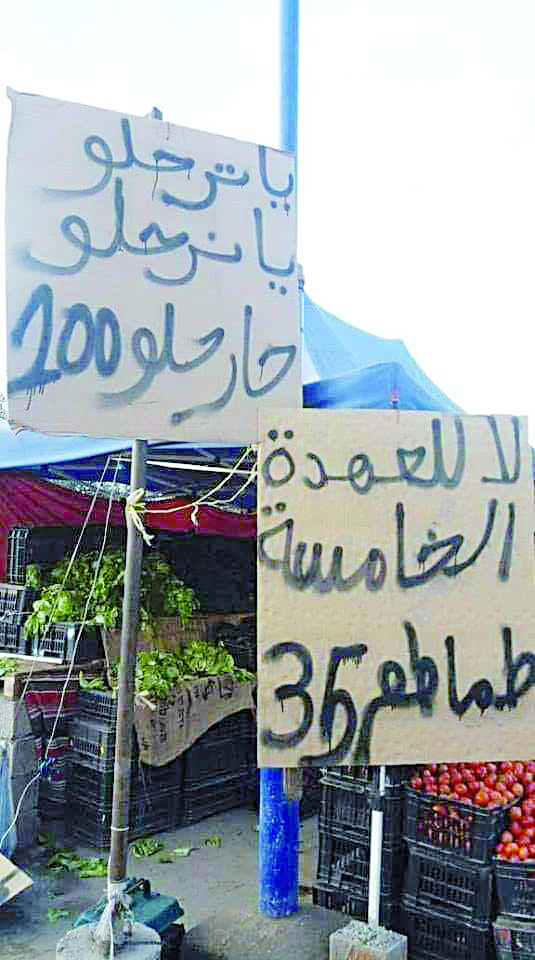 يا ترحلو
يا نرحلو
حار حلو 200
لا للعهدة
الخامسة
طماطم 35